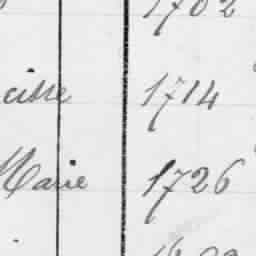 1702
cisse 1714
Marie 1726